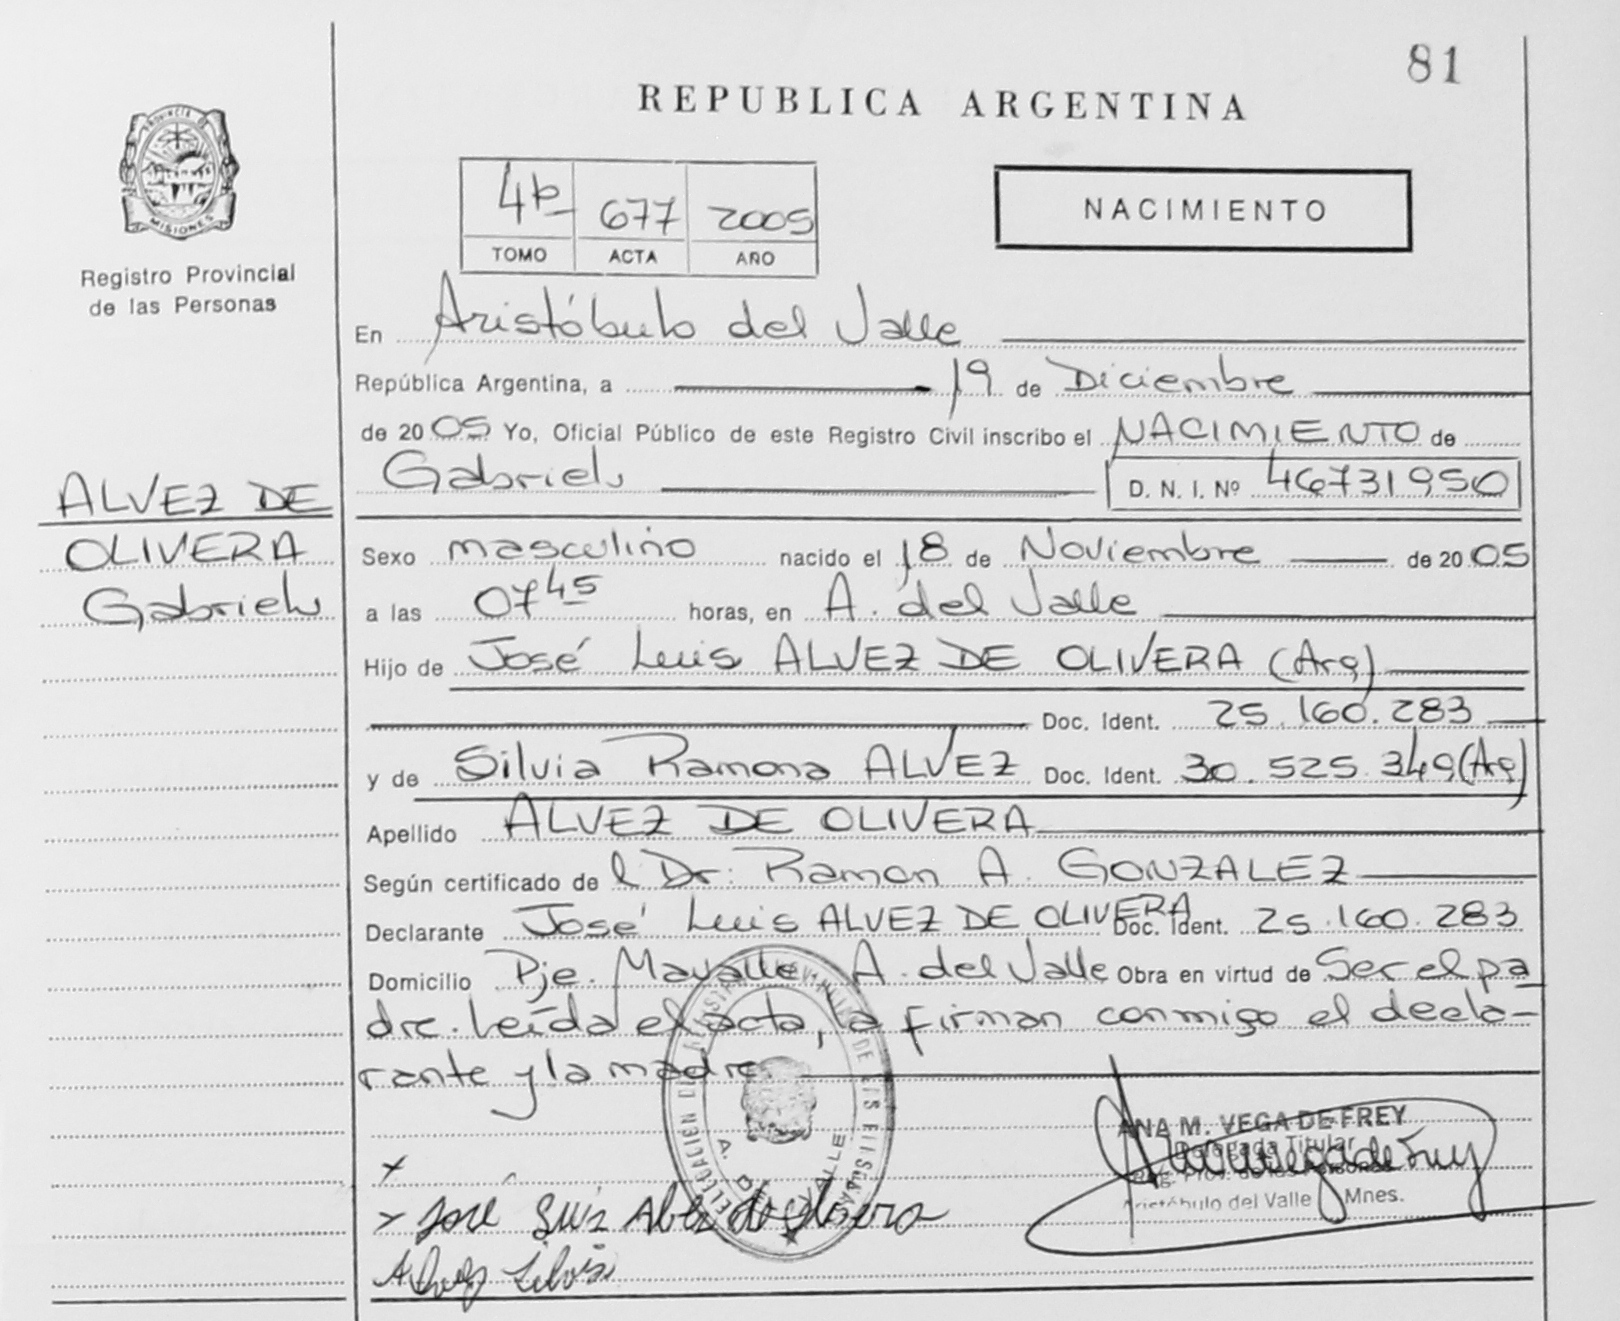 81
REPUBLICA ARGENTINA
PROVINCIA DE
MISIONES
Registro Provincial
de las Personas
4b 677 2005
TOMO ACTA AÑO
NACIMIENTO
En Aristóbulo del Valle
República Argentina, a 19 de Diciembre
de 2005 Yo, Oficial Público de este Registro Civil inscribo el NACIMIENTO de
Gabriel D. N. I. Nº 46731950
ALVEZ DE
OLIVERA
Gabriel
Sexo masculino nacido el 18 de Noviembre de 2005
a las 07 45 horas, en A. del Valle
Hijo de José Luis ALVEZ DE OLIVERA (Arg)
Doc. Ident. 25.160.283
y de Silvia Ramona ALVEZ Doc. Ident. 30.525.349 (Arg)
Apellido ALVEZ DE OLIVERA
Según certificado del Dr: Ramon A. GONZALEZ
Declarante José Luis ALVEZ DE OLIVERA Doc. Ident. 25.160.283
Domicilio Pje. Mavalle A. del Valle Obra en virtud de Ser el pa
dre. Leída el acta, la firman conmigo el decla-
rante y la madre
ANA M. VEGA DE FREY
Delegada Titular
Reg. Prov. de las Personas
Aristóbulo del Valle Mnes.
A. DEL VALLE
x
José Luis Alvez de Olivera
Alvez Silvia